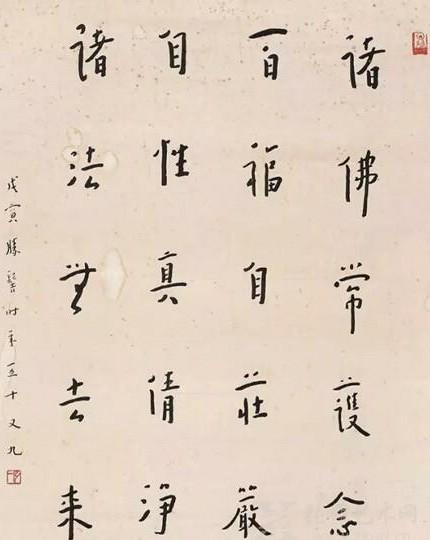 諸佛常護念
百福自莊嚴
自性真清淨
諸法無去來
戊寅勝髻時年五十又九